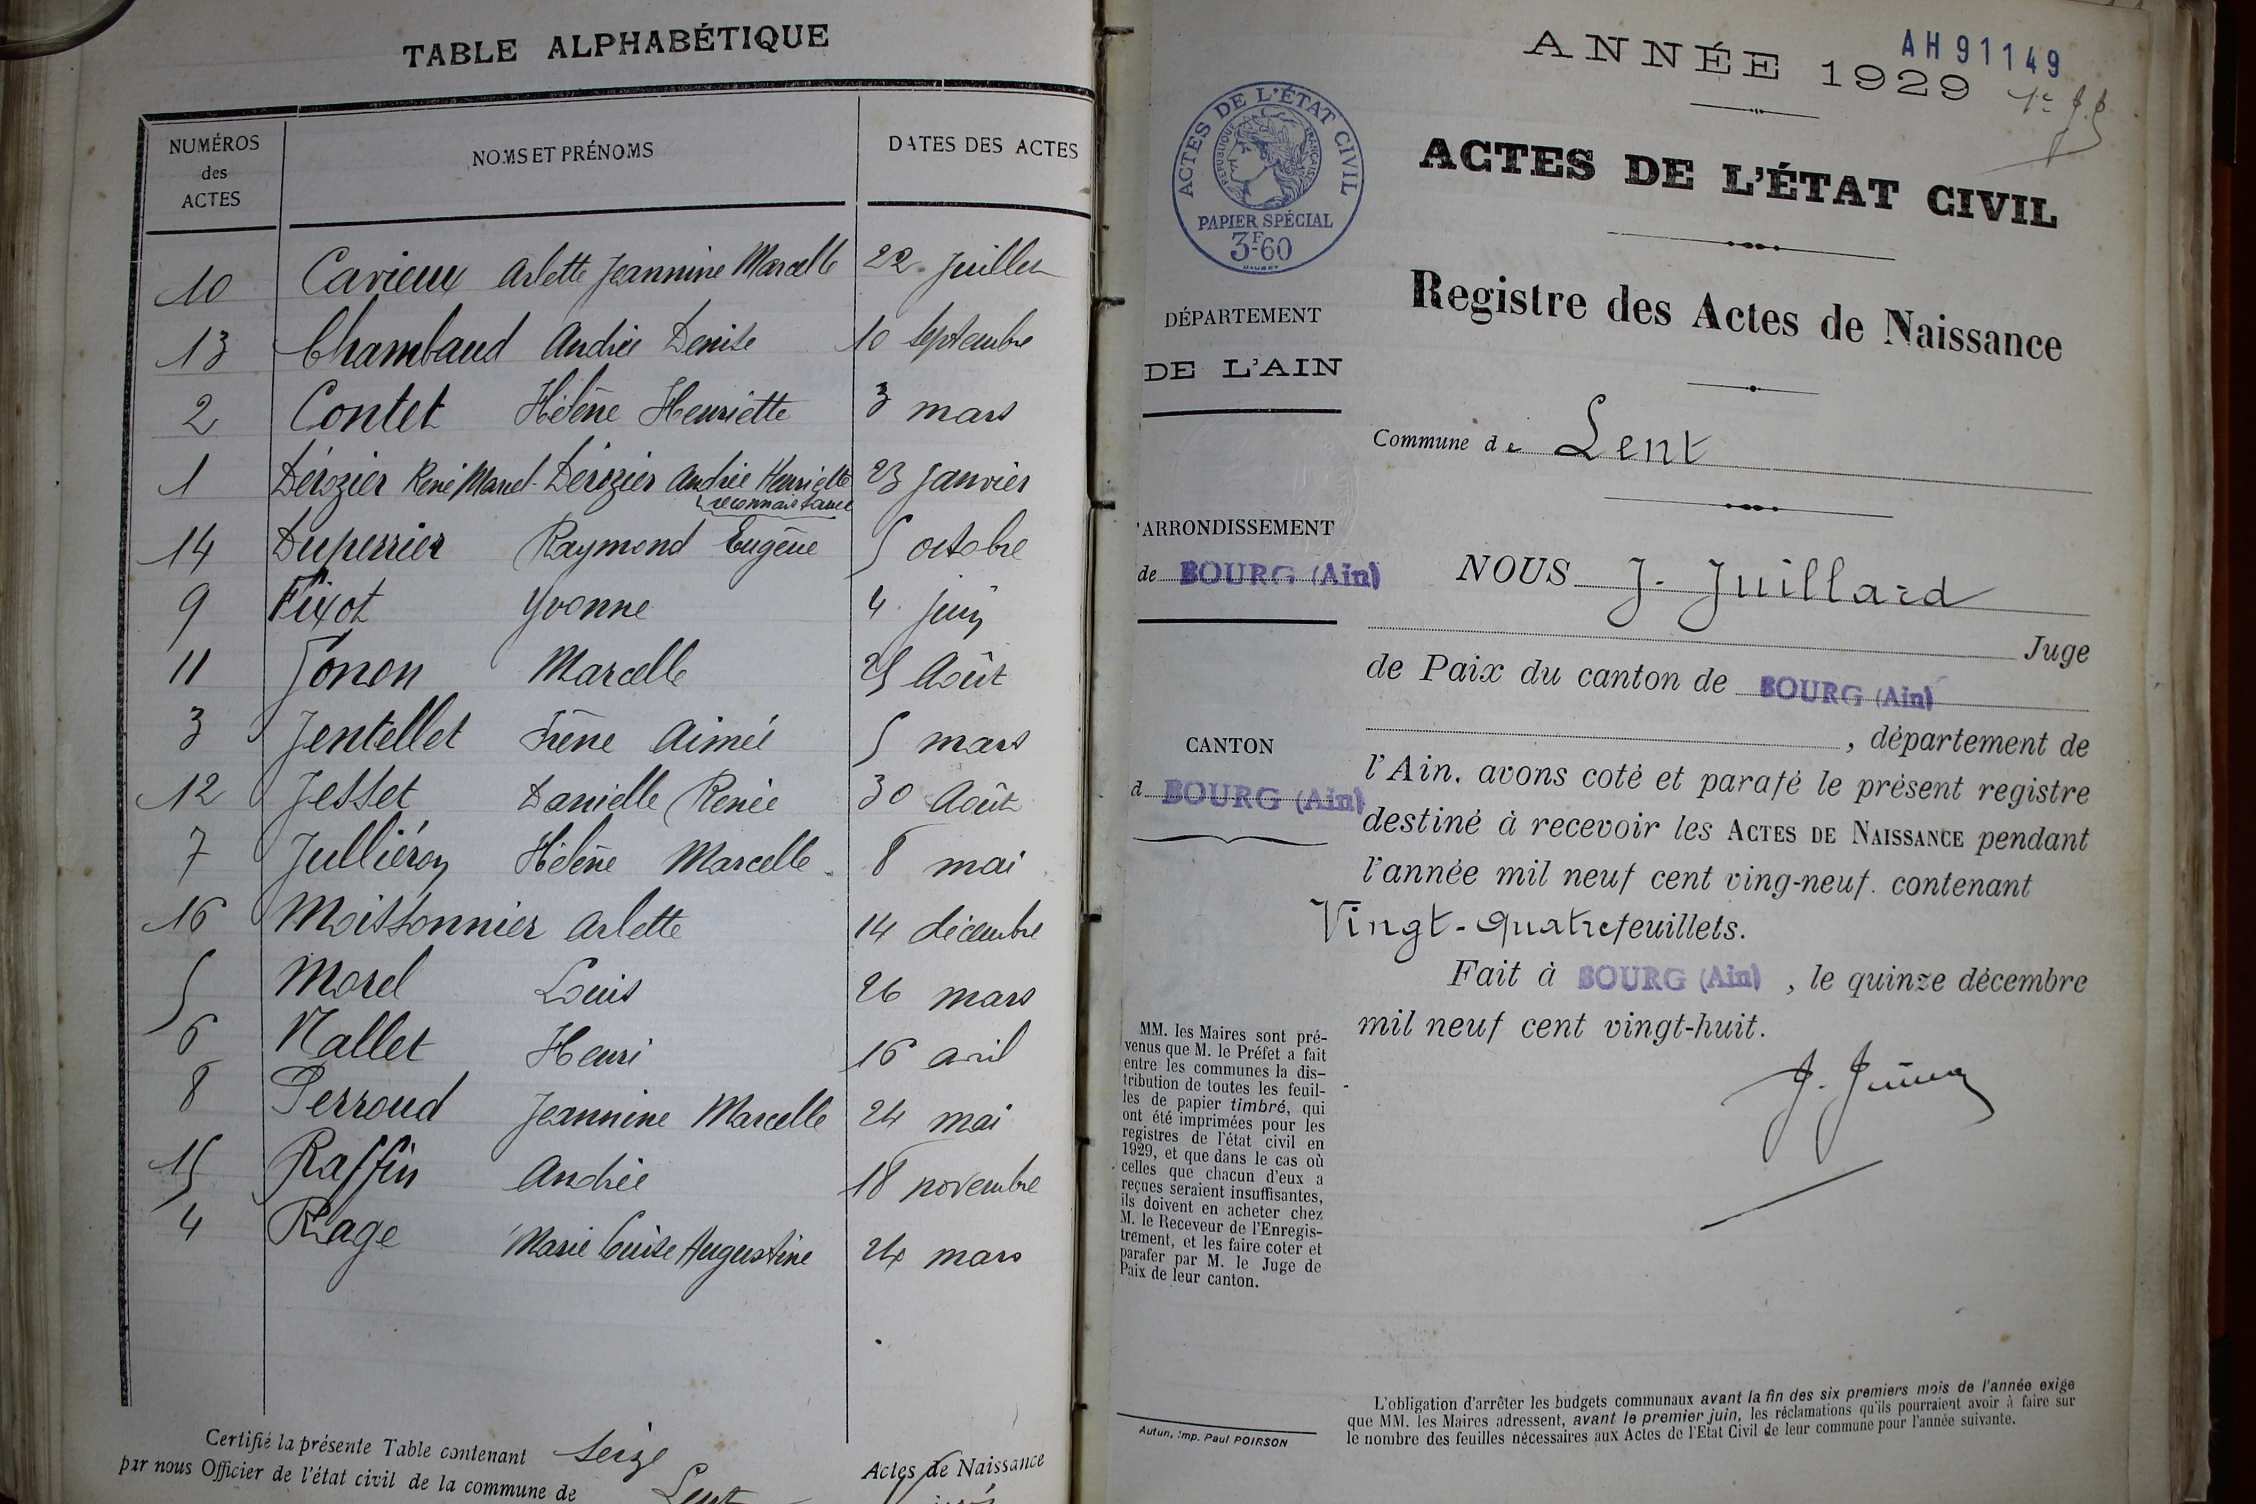 TABLE ALPHABÉTIQUE
NUMÉROS
des
ACTES
NOMS ET PRÉNOMS
DATES DES ACTES
10 Carieux Arlette Jeannine Marcelle 22 Juillet
13 Chambaud Andrée Denise 10 septembre
2 Contet Hélène Henriette 3 mars
1 Dérozier René Marcel - Dérozier Andrée Henriette 23 Janvier
reconnaissance
14 Duperrier Raymond Eugène 5 octobre
9 Fixot Yvonne 4 juin
11 Gonon Marcelle 25 Août
3 Jentellet Irène Aimée 5 mars
12 Jesset Danielle Renée 30 Août
7 Julliéron Hélène Marcelle 8 mai
16 Moissonnier Arlette 14 décembre
5 Morel Louis 26 mars
6 Nallet Henri 16 avril
8 Perroud Jeannine Marcelle 24 mai
15 Raffin Andrée 18 novembre
4 Rage Marie Louise Augustine 24 mars
Certifié la présente Table contenant seize Actes de Naissance
par nous Officier de l'état civil de la commune de Lent
ANNÉE 1929
AH 91149
ACTES DE L'ÉTAT CIVIL
RÉPUBLIQUE FRANÇAISE
PAPIER SPÉCIAL
3F60
ACTES DE L'ÉTAT CIVIL
Registre des Actes de Naissance
DÉPARTEMENT
DE L'AIN
Commune de Lent
ARRONDISSEMENT
de BOURG (Ain)
CANTON
d BOURG (Ain)
NOUS J. Juillard
Juge
de Paix du canton de BOURG (Ain)
, département de
l'Ain, avons coté et parafé le présent registre
destiné à recevoir les ACTES DE NAISSANCE pendant
l'année mil neuf cent ving-neuf. contenant
Vingt-quatre feuillets.
Fait à BOURG (Ain) , le quinze décembre
mil neuf cent vingt-huit.
MM. les Maires sont pré-
venus que M. le Préfet a fait
entre les communes la dis-
tribution de toutes les feuil-
les de papier timbré, qui
ont été imprimées pour les
registres de l'état civil en
1929, et que dans le cas où
celles que chacun d'eux a
reçues seraient insuffisantes,
ils doivent en acheter chez
M. le Receveur de l'Enregis-
trement, et les faire coter et
parafer par M. le Juge de
Paix de leur canton.
Autun, Imp. Paul POIRSON
L'obligation d'arrêter les budgets communaux avant la fin des six premiers mois de l'année exige
que MM. les Maires adressent, avant le premier juin, les réclamations qu'ils pourraient avoir à faire sur
le nombre des feuilles nécessaires aux Actes de l'Etat Civil de leur commune pour l'année suivante.